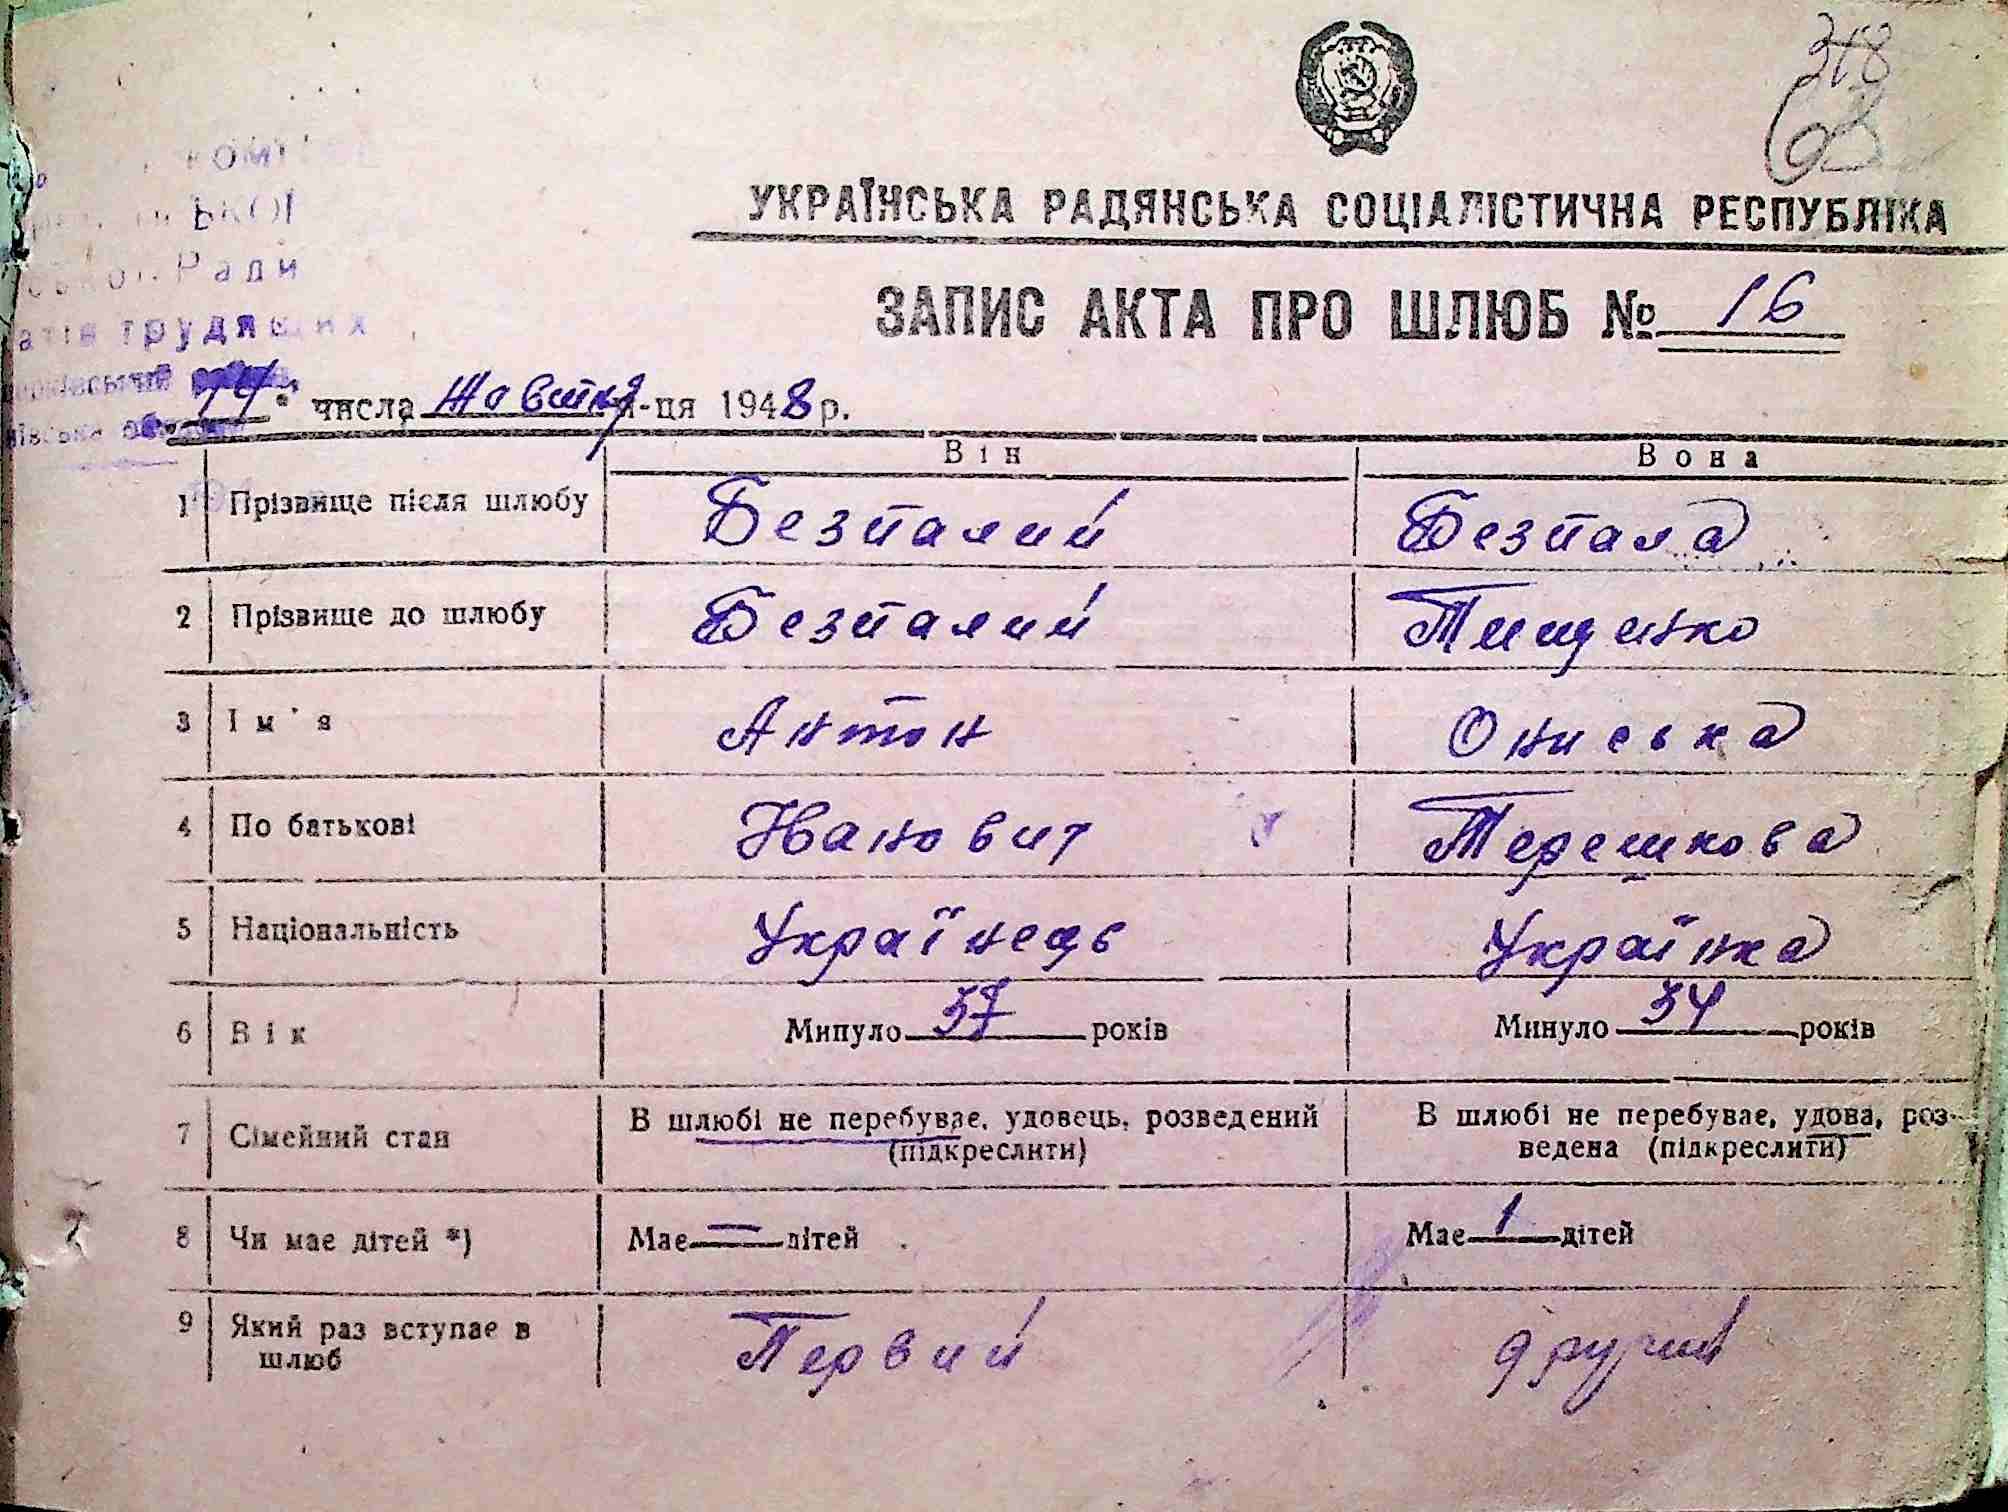 318
63
УКРАЇНСЬКА РАДЯНСЬКА СОЦІАЛІСТИЧНА РЕСПУБЛІКА
ЗАПИС АКТА ПРО ШЛЮБ № 16
Ради
трудящих
числа Жовтня м-ця 1948 р.
Він Вона
1 Прізвище після шлюбу Безпалий Безпала
2 Прізвище до шлюбу Безпалий Тищенко
3 Ім'я Антон Ониська
4 По батькові Іванович Терешкова
5 Національність Українець Українка
6 Вік Минуло 37 років Минуло 34 років
7 Сімейний стан В шлюбі не перебуває, удовець, розведений В шлюбі не перебуває, удова, роз-
(підкреслити) ведена (підкреслити)
8 Чи має дітей *) Має — дітей Має 1 дітей
9 Який раз вступає в Первий другий
шлюб